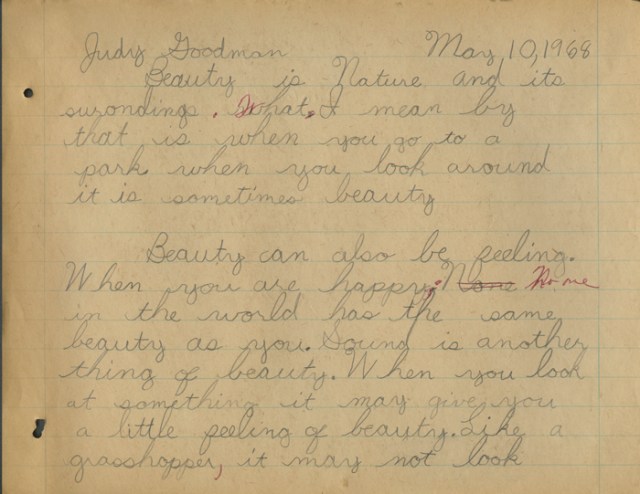 Judy Goodman May 10, 1968
Beauty is Nature and its
surondings. What I mean by
that is when you go to a
park when you look around
it is sometimes beauty
Beauty can also be feeling.
When you are happy. None No one
in the world has the same
beauty as you. Sound is another
thing of beauty. When you look
at something it may give you
a little feeling of beauty. Like a
grasshopper, it may not look